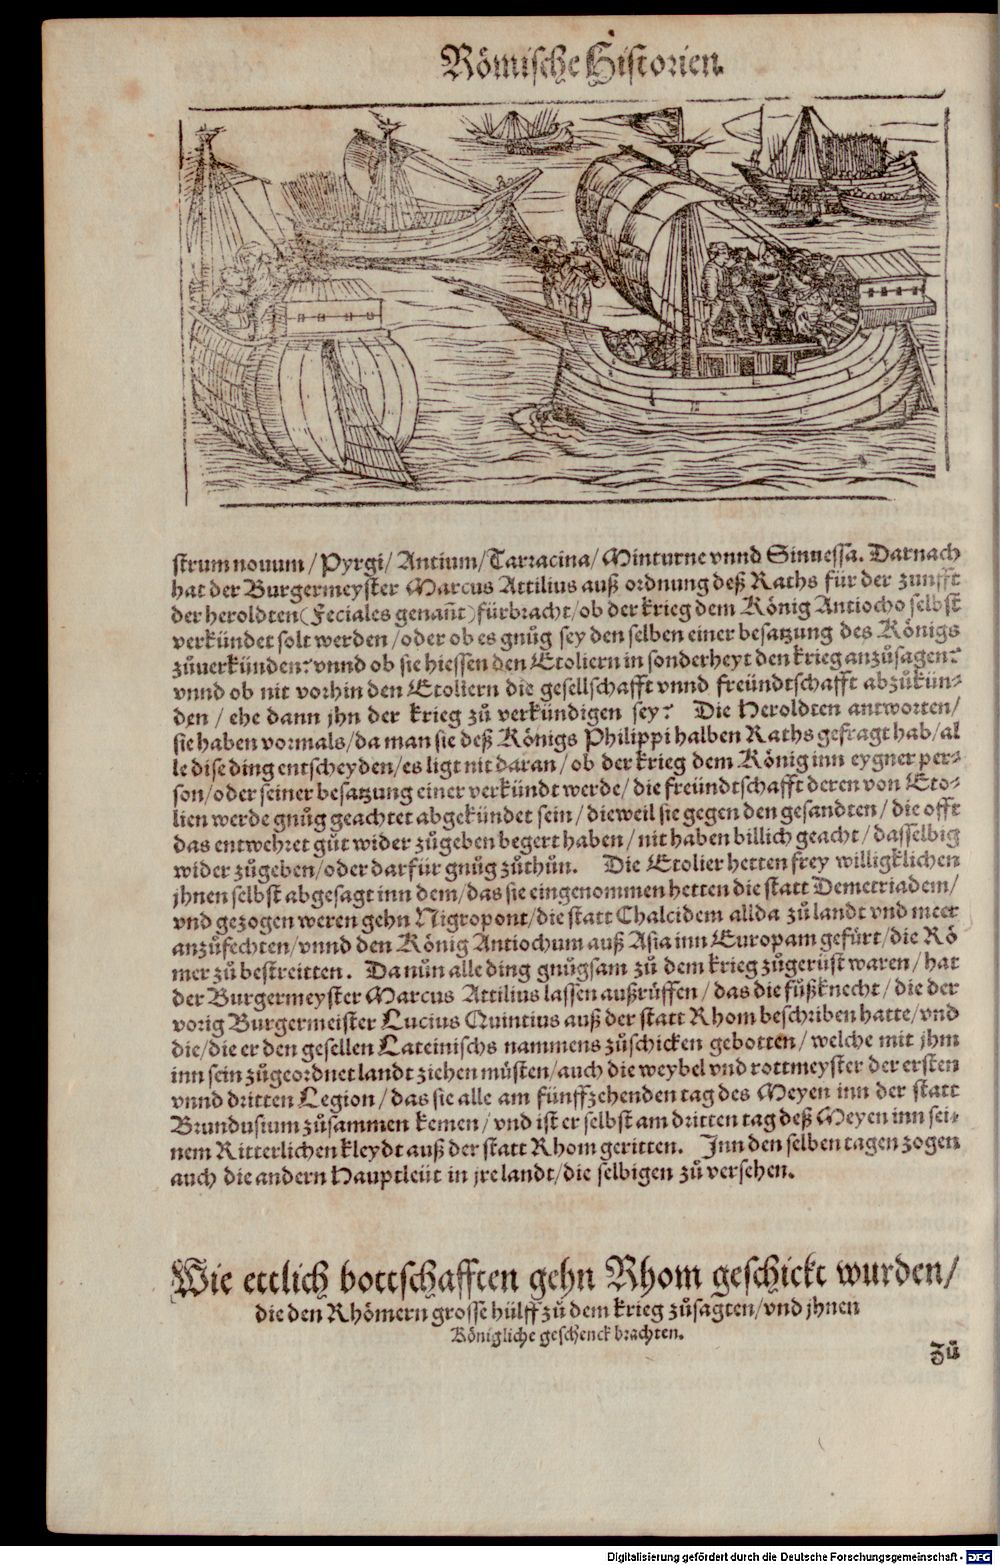 Römische Historien.
strum nouum / Pyrgi / Antium / Tarracina / Minturne vnnd Sinuessa. Darnach
hat der Burgermeyster Marcus Attilius auß ordnung deß Raths für der zunfft
der heroldten (Feciales genañt) fürbracht / ob der krieg dem König Antiocho selbst
verkündet solt werden / oder ob es gnůg sey den selben einer besatzung des Königs
zůuerkünden: vnnd ob sie hiessen den Etoliern in sonderheyt den krieg anzůsagen:
vnnd ob nit vorhin den Etoliern die gesellschafft vnnd freündtschafft abzůkün-
den / ehe dann jhn der krieg zů verkündigen sey? Die Heroldten antworten /
sie haben vormals / da man sie deß Königs Philippi halben Raths gefragt hab / al
le dise ding entscheyden / es ligt nit daran / ob der krieg dem König inn eygner per-
son / oder seiner besatzung einer verkündt werde / die freündtschafft deren von Eto-
lien werde gnůg geachtet abgekündet sein / dieweil sie gegen den gesandten / die offt
das entwehret gůt wider zůgeben begert haben / nit haben billich geacht / dasselbig
wider zůgeben / oder darfür gnůg zůthůn. Die Etolier hetten frey willigklichen
jhnen selbst abgesagt inn dem / das sie eingenommen hetten die statt Demetriadem /
vnd gezogen weren gehn Nigropont / die statt Chalcidem allda zů landt vnd meer
anzůfechten / vnnd den König Antiochum auß Asia inn Europam gefürt / die Rö
mer zů bestreitten. Da nůn alle ding gnůgsam zů dem krieg zůgerüst waren / hat
der Burgermeyster Marcus Attilius lassen außrůffen / das die fůßknecht / die der
vorig Burgermeister Lucius Quintius auß der statt Rhom beschriben hatte / vnd
die / die er den gesellen Lateinischs nammens zůschicken gebotten / welche mit jhm
inn sein zůgeordnet landt ziehen můsten / auch die weybel vnd rottmeyster der ersten
vnnd dritten Legion / das sie alle am fünffzehenden tag des Meyen inn der statt
Brundusium zůsammen kemen / vnd ist er selbst am dritten tag deß Meyen inn sei-
nem Ritterlichen kleydt auß der statt Rhom geritten. Inn den selben tagen zogen
auch die andern Hauptleüt in jre landt / die selbigen zů versehen.
Wie ettlich bottschafften gehn Rhom geschickt wurden /
die den Rhömern grosse hülff zů dem krieg zůsagten / vnd jhnen
Königliche geschenck brachten.
Zů
Digitalisierung gefördert durch die Deutsche Forschungsgemeinschaft - DFG